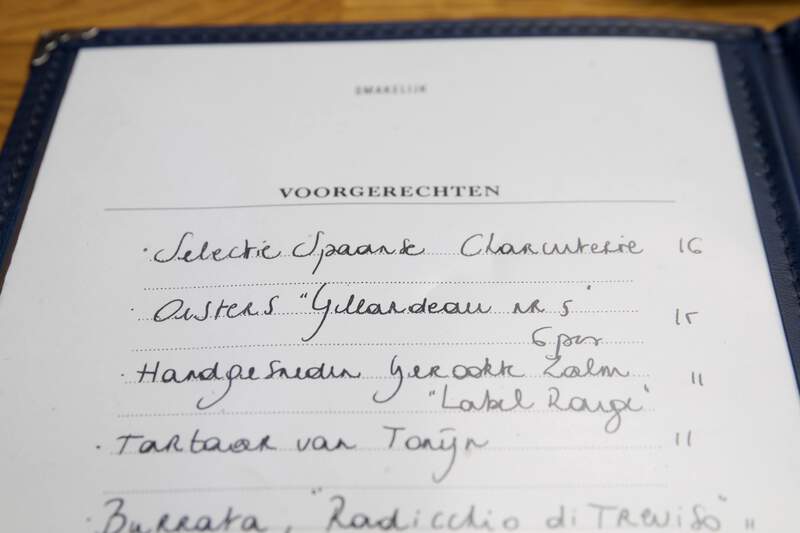 SMAKELIJK
VOORGERECHTEN
· Selectie Spaanse Charcuterie 16
· Oesters "Gillardeau nr 5" 15
6 per
· Handgesneden Gerookte Zalm 11
"Label Rouge"
· Tartaar van Tonijn 11
· Burrata, "Radicchio di Treviso" 11